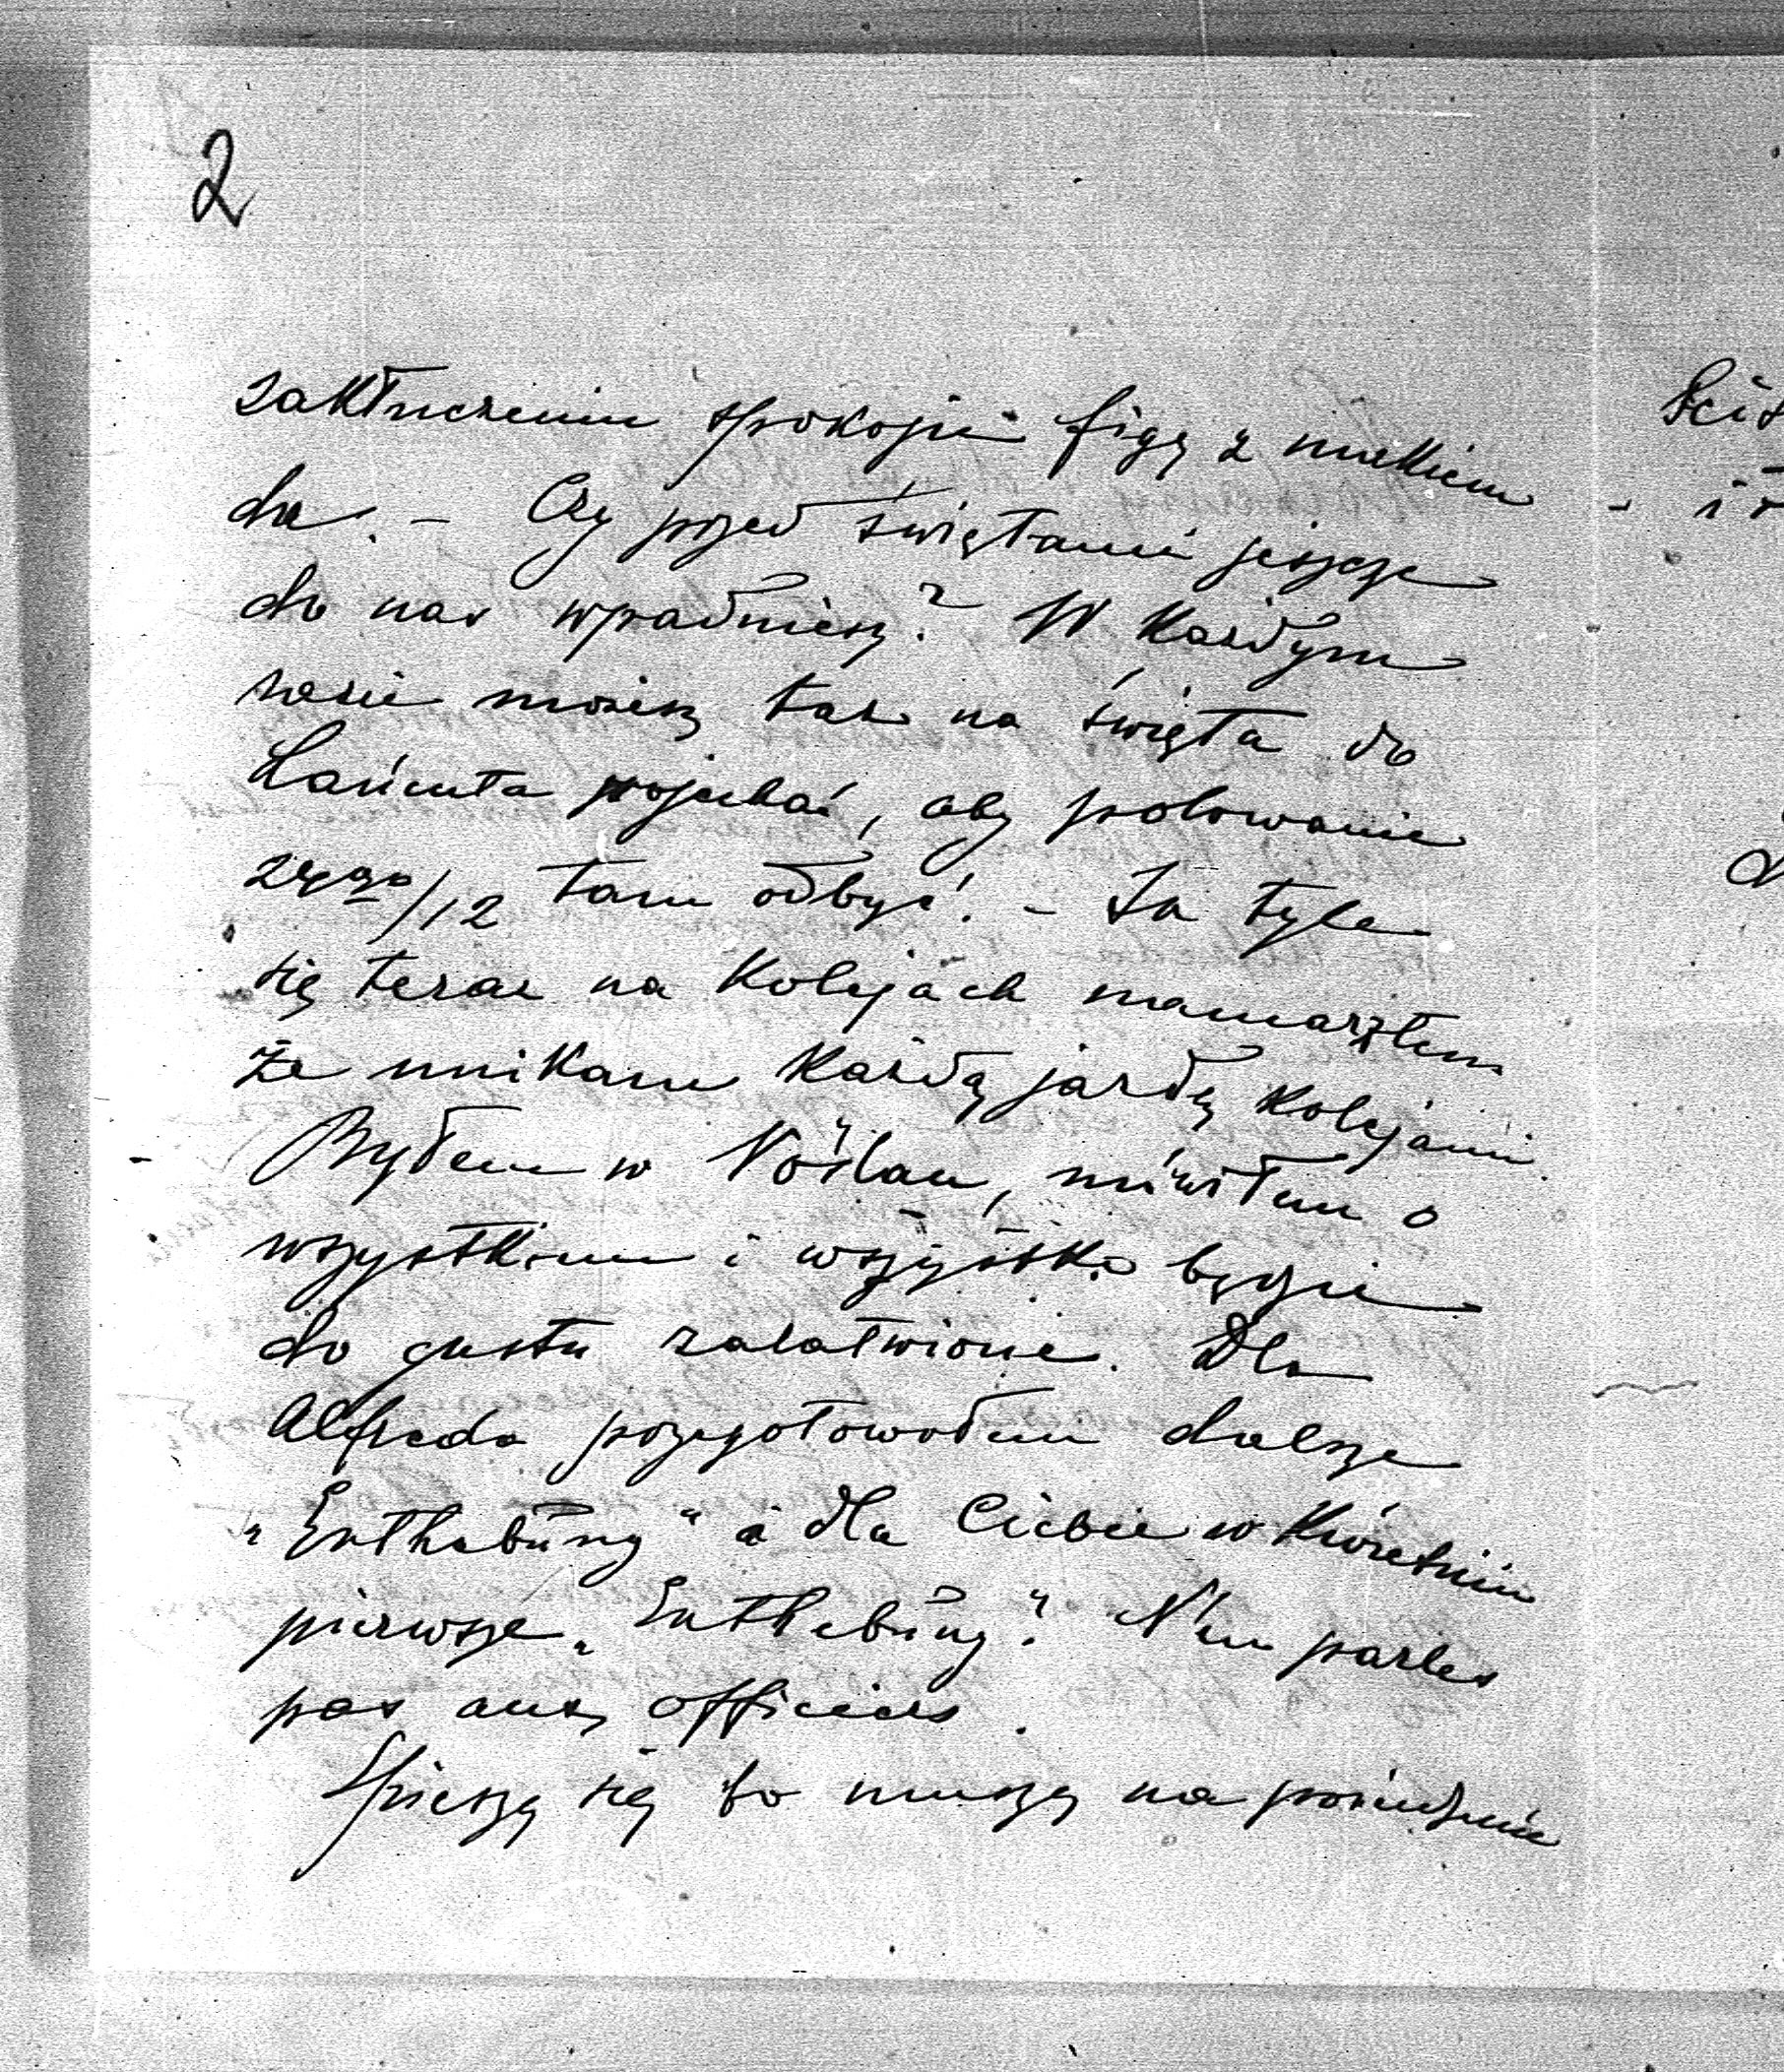 2
zakłuczeniu spokojnie figę z makiem
da. – Czy przed świętami jeszcze
do nas wpadniesz? W każdym
razie możesz tak na święta do
Łańcuta pojechać, aby polowanie
29go/12 tam odbyć. – Ja tyle
się teraz na kolejach namarzłem
że unikam każdą jazdę kolejami.
Byłem w Vöslau, mówiłem o
wszystkiem i wszystko będzie
do gustu załatwione. Dla
Alfreda przygotowałem dalsze
„Enthebŭng“ a dla Ciebie w Kwietniu
pierwsze „Enthebŭng“. N'en parles
pas aux officiers.
Spieszę się bo muszę na posiedzenie